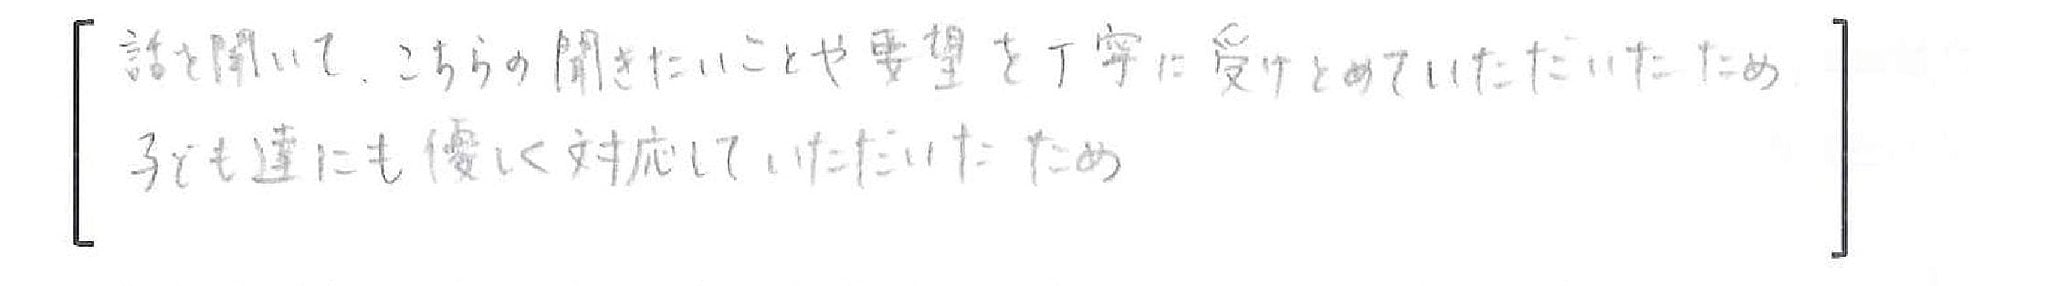 話を聞いて、こちらの聞きたいことや要望を丁寧に受けとめていただいたため
子ども達にも優しく対応していただいたため